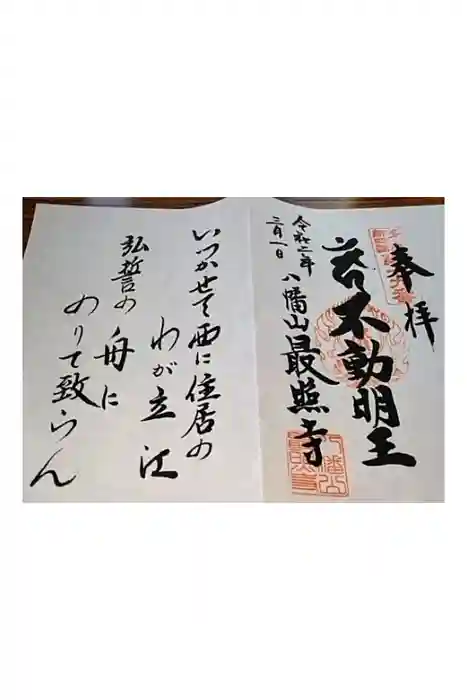 奉拝
若不動明王
八幡山最照寺
令和二年
三月一日
いつかせて西に住居の
わが立江
弘誓の舟に
のりて致らん